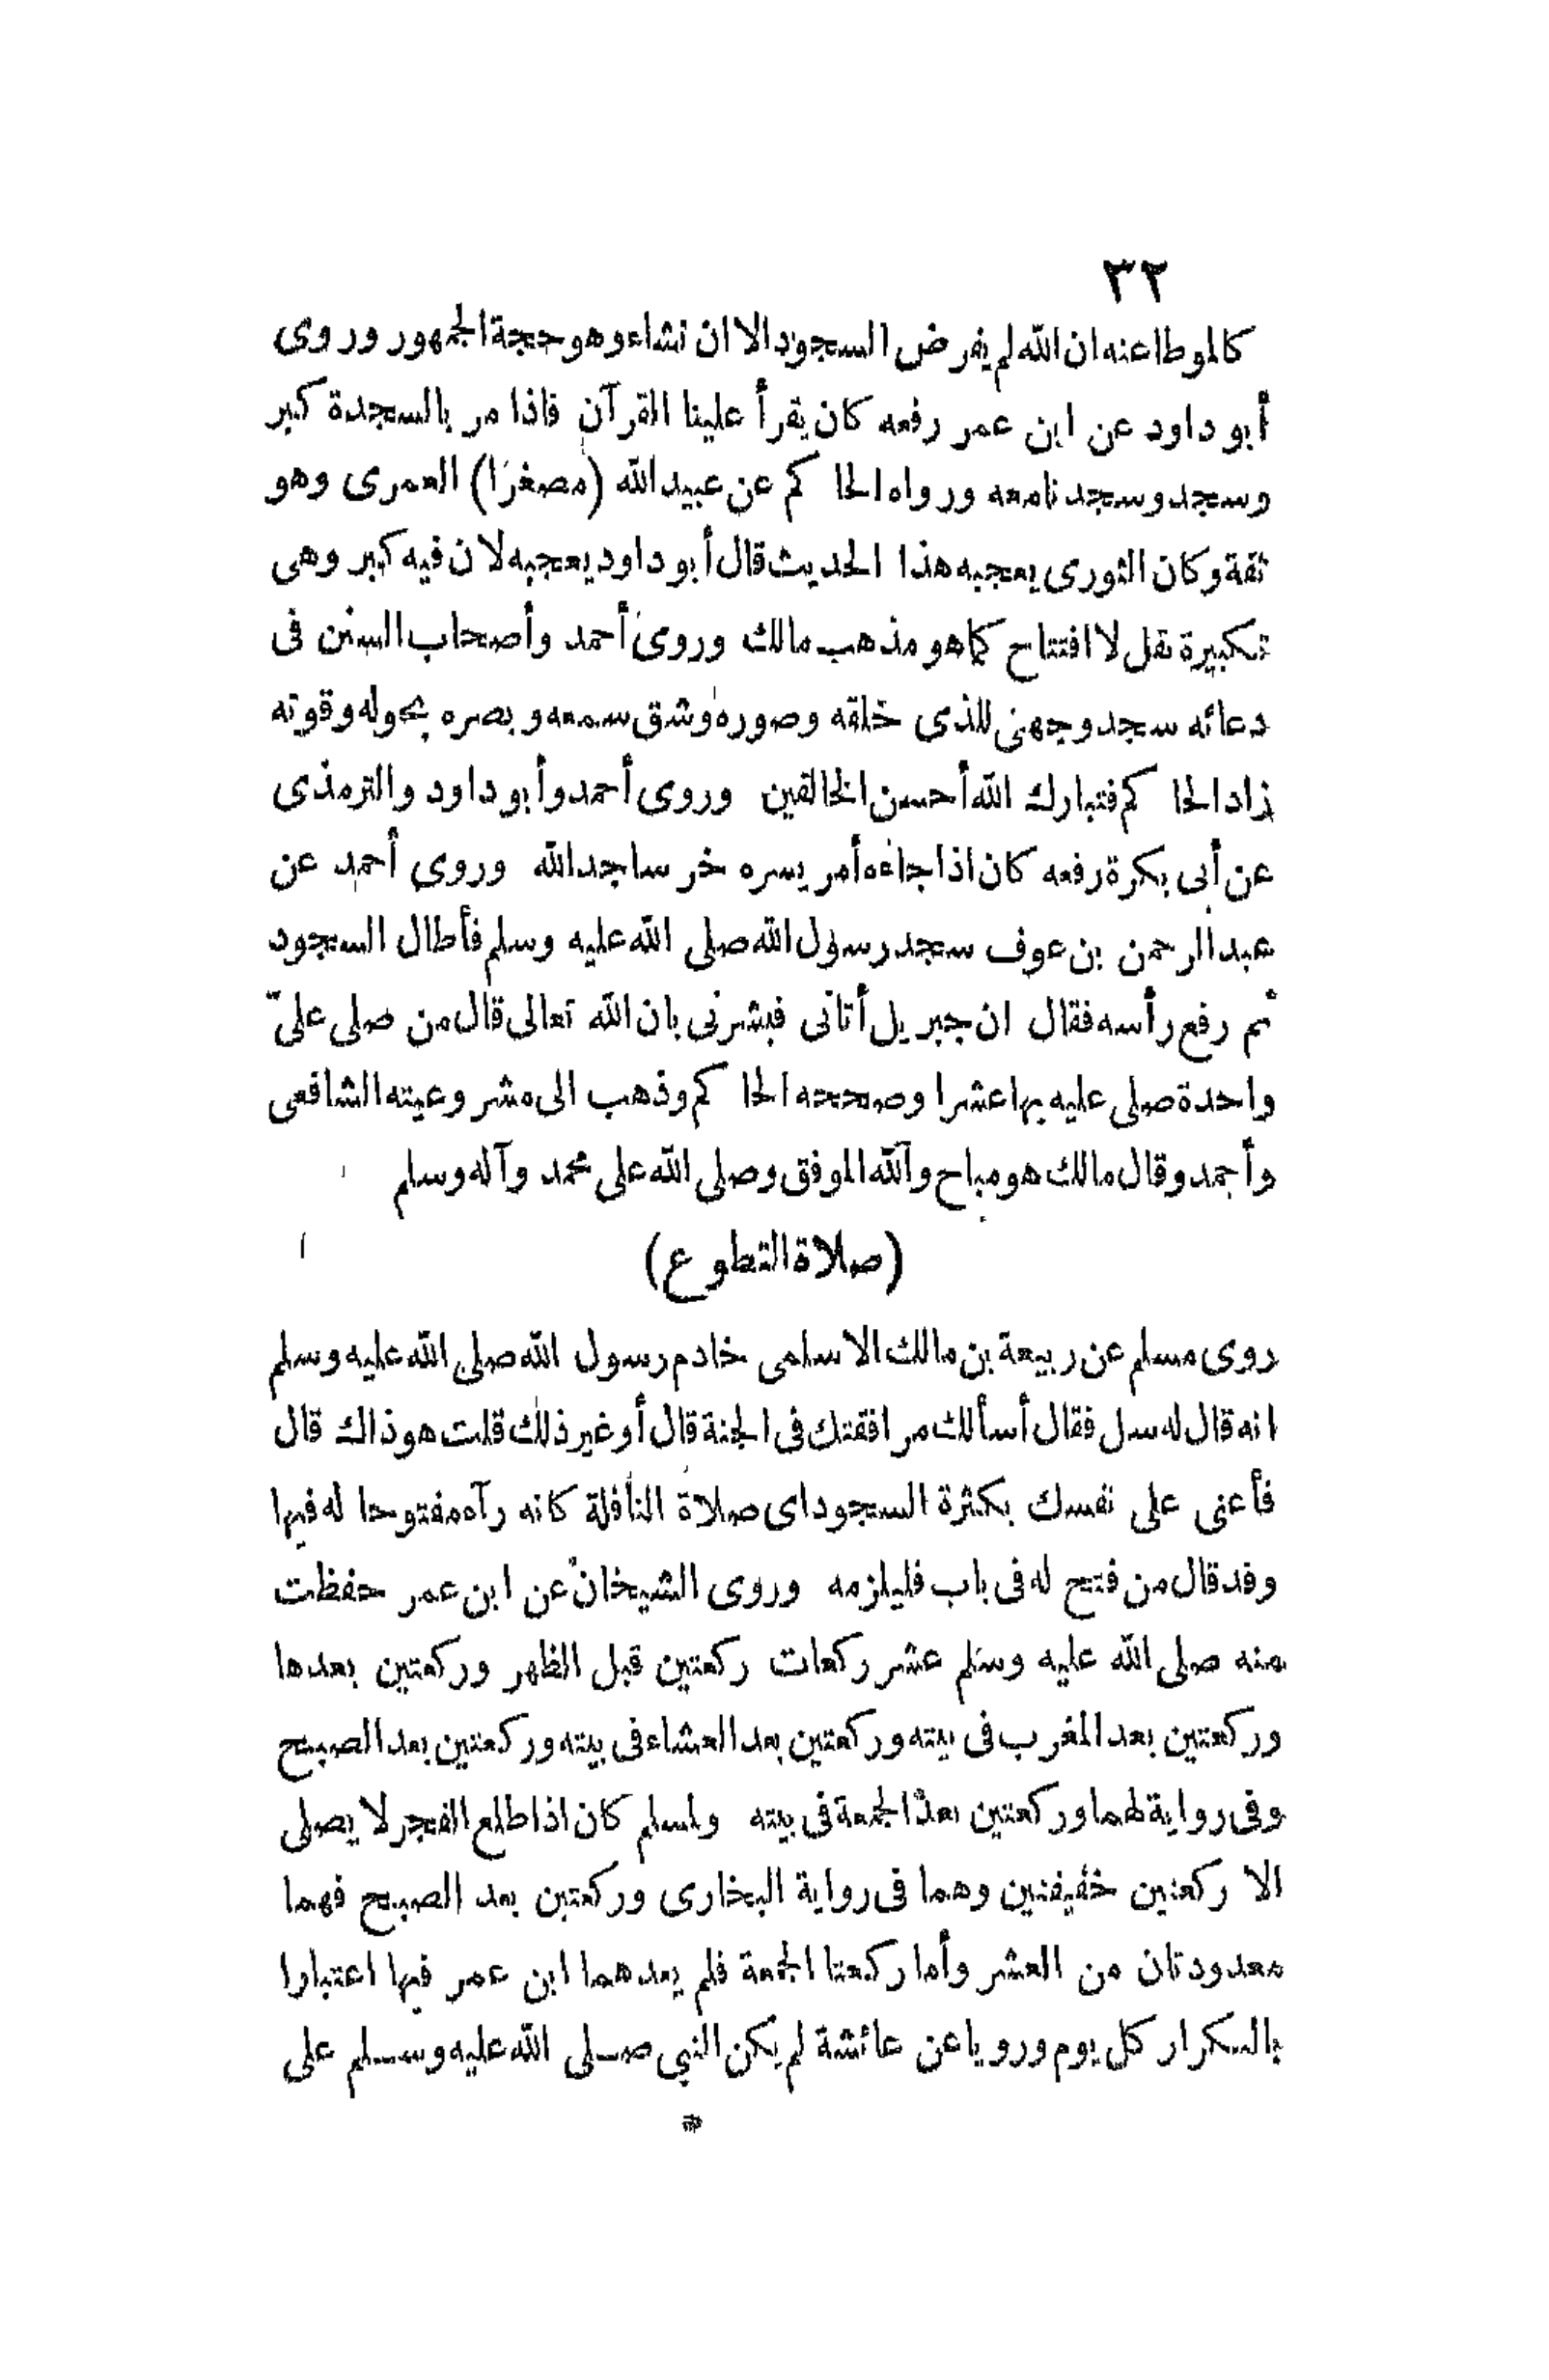 ٣٢
كالموطا عنه ان الله لم يفرض السجود الا ان نشاء وهو حجة الجمهور وروى
أبو داود عن ابن عمر رفعه كان يقرأ علينا القرآن فاذا مر بالسجدة كبر
وسجد وسجدنا معه ورواه الحاكم عن عبيد الله (مصغرا) العمرى وهو
ثقة وكان الثورى يعجبه هذا الحديث قال أبو داود يعجبه لان فيه كبر وهى
تكبيرة نقل لا افتتاح كما هو مذهب مالك وروى أحمد وأصحاب السنن فى
دعائه سجد وجهى للذى خلقه وصوره وشق سمعه وبصره بحوله وقوته
زاد الحاكم فتبارك الله أحسن الخالقين وروى أحمد وأبو داود والترمذى
عن أبى بكرة رفعه كان اذا جاءه أمر يسره خر ساجدا لله وروى أحمد عن
عبد الرحمن بن عوف سجد رسول الله صلى الله عليه وسلم فأطال السجود
ثم رفع رأسه فقال ان جبريل أتانى فبشرنى بان الله تعالى قال من صلى علىّ
واحدة صلى عليه بها عشرا وصححه الحاكم وذهب الى مشروعيته الشافعى
وأحمد وقال مالك هو مباح والله الموفق وصلى الله على محمد وآله وسلم
(صلاة التطوع)
روى مسلم عن ربيعة بن مالك الاسلمى خادم رسول الله صلى الله عليه وسلم
انه قال له سل فقال أسألك مرافقتك فى الجنة قال أو غير ذلك قلت هو ذاك قال
فأعنى على نفسك بكثرة السجود اى صلاة النافلة كانه رآه مفتوحا له فيها
وقد قال من فتح له فى باب فليلزمه وروى الشيخان عن ابن عمر حفظت
منه صلى الله عليه وسلم عشر ركعات ركعتين قبل الظهر وركعتين بعدها
وركعتين بعد المغرب فى بيته وركعتين بعد العشاء فى بيته وركعتين بعد الصبح
وفى رواية لهما وركعتين بعد الجمعة فى بيته ولمسلم كان اذا طلع الفجر لا يصلى
الا ركعتين خفيفتين وهما فى رواية البخارى وركعتين بعد الصبح فهما
معدودتان من العشر وأما ركعتا الجمعة فلم يعدهما ابن عمر فيها اعتبارا
بالتكرار كل يوم ورويا عن عائشة لم يكن النبي صلى الله عليه وسلم على